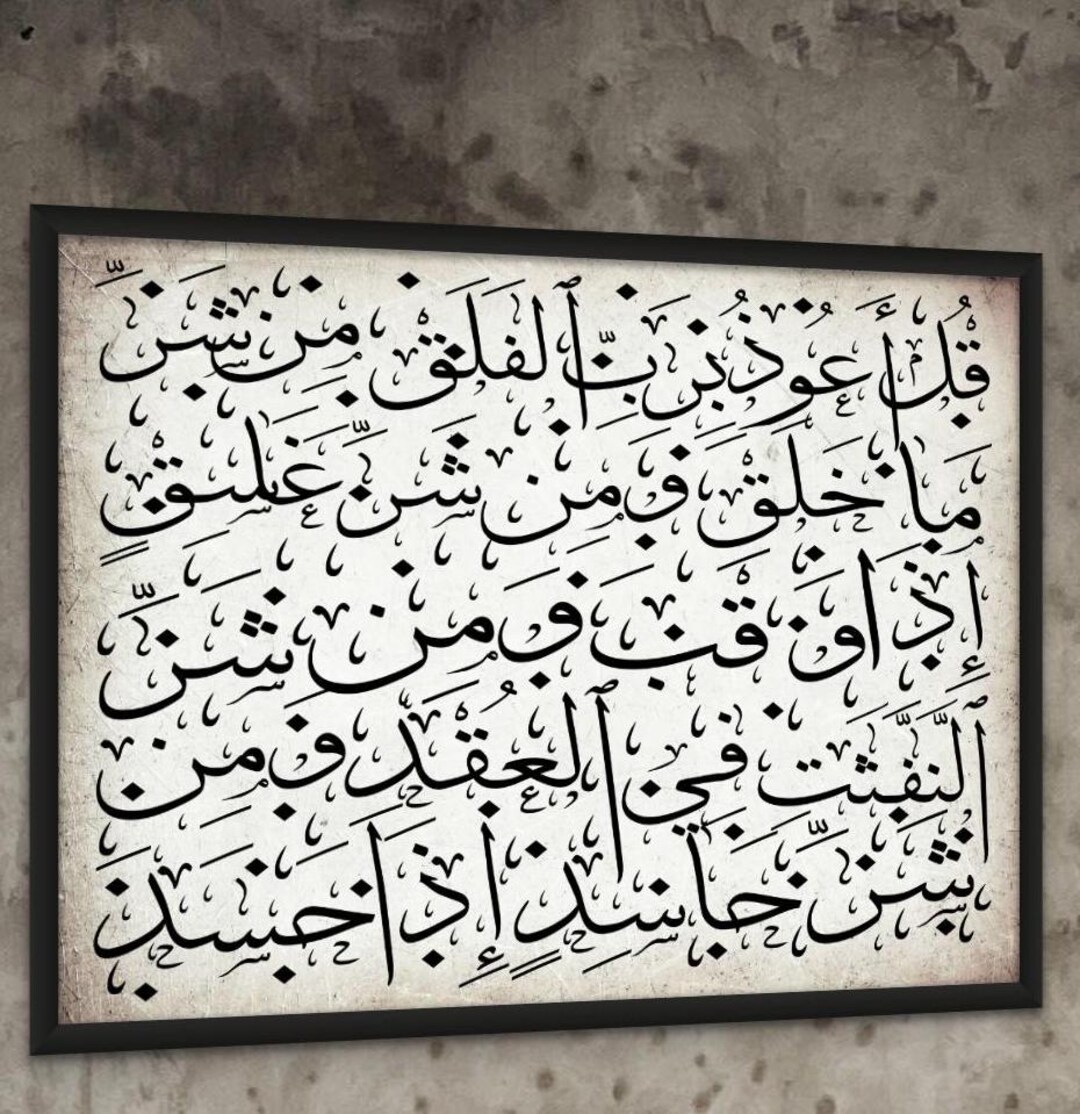 قُلْ أَعُوذُ بِرَبِّ ٱلْفَلَقِ مِنْ شَرِّ
مَا خَلَقَ وَمِنْ شَرِّ غَاسِقٍ
إِذَا وَقَبَ وَمِنْ شَرِّ
ٱلنَّفَّٰثَٰتِ فِي ٱلْعُقَدِ وَمِنْ
شَرِّ حَاسِدٍ إِذَا حَسَدَ